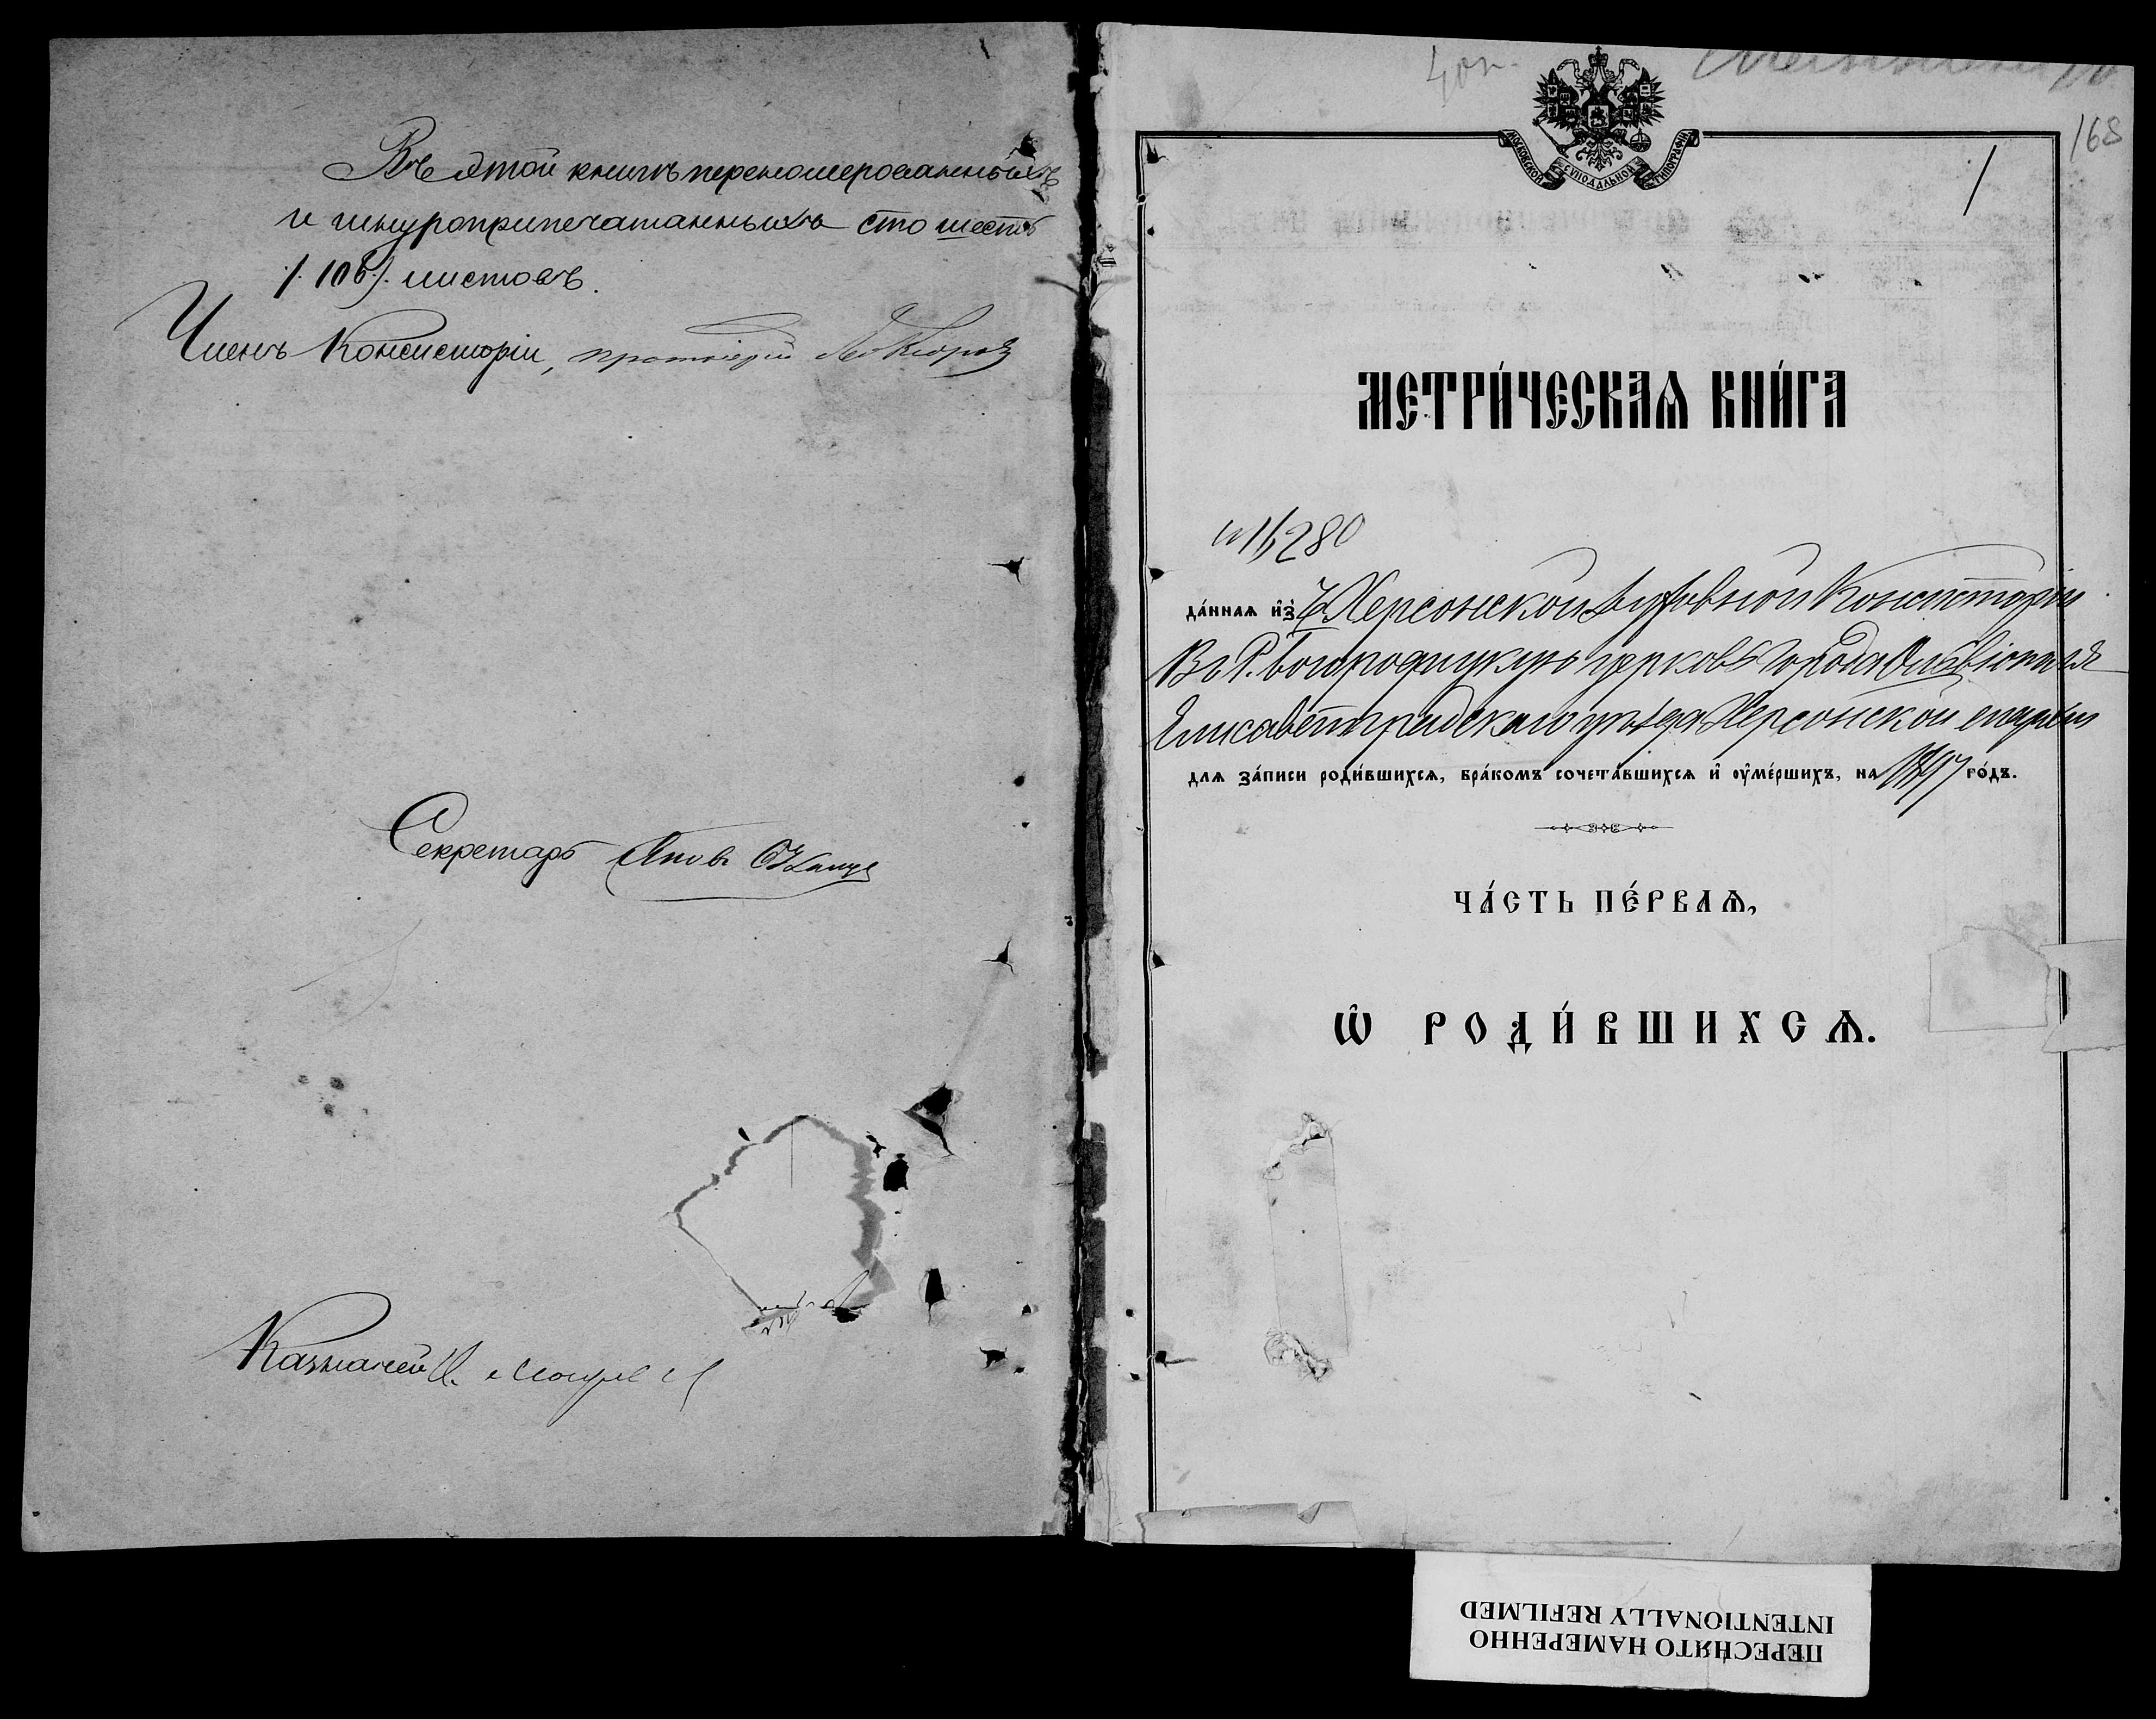 Въ этой книгѣ перенумерованныхъ
и шнуроприпечатанныхъ сто шесть
/.106/. листовъ.
Членъ Консисторіи, протоіерей
Секретарь
Казначей
168
МОСКОВСКОЙ СѴНОДАЛЬНОЙ ТИПОГРАФІИ
1
МЕТРИ́ЧЕСКАѦ КНИ́ГА
№ 16280
да́ннаѧ и҆зъ Херсонской Духовной Консисторіи
Въ Р. Богородицкую церковь города Ольвіополя
Елисаветградскаго уѣзда Херсонской епархіи
длѧ за́писи роди́вшихсѧ, бра́комъ сочета́вшихсѧ и҆ ᲂу҆ме́ршихъ, на 1897 го́дъ.
ЧА́СТЬ ПЕ́РВАѦ,
Ѡ҆ РОДИ́ВШИХСѦ.
ПЕРЕСНЯТО НАМЕРЕННО
INTENTIONALLY REFILMED